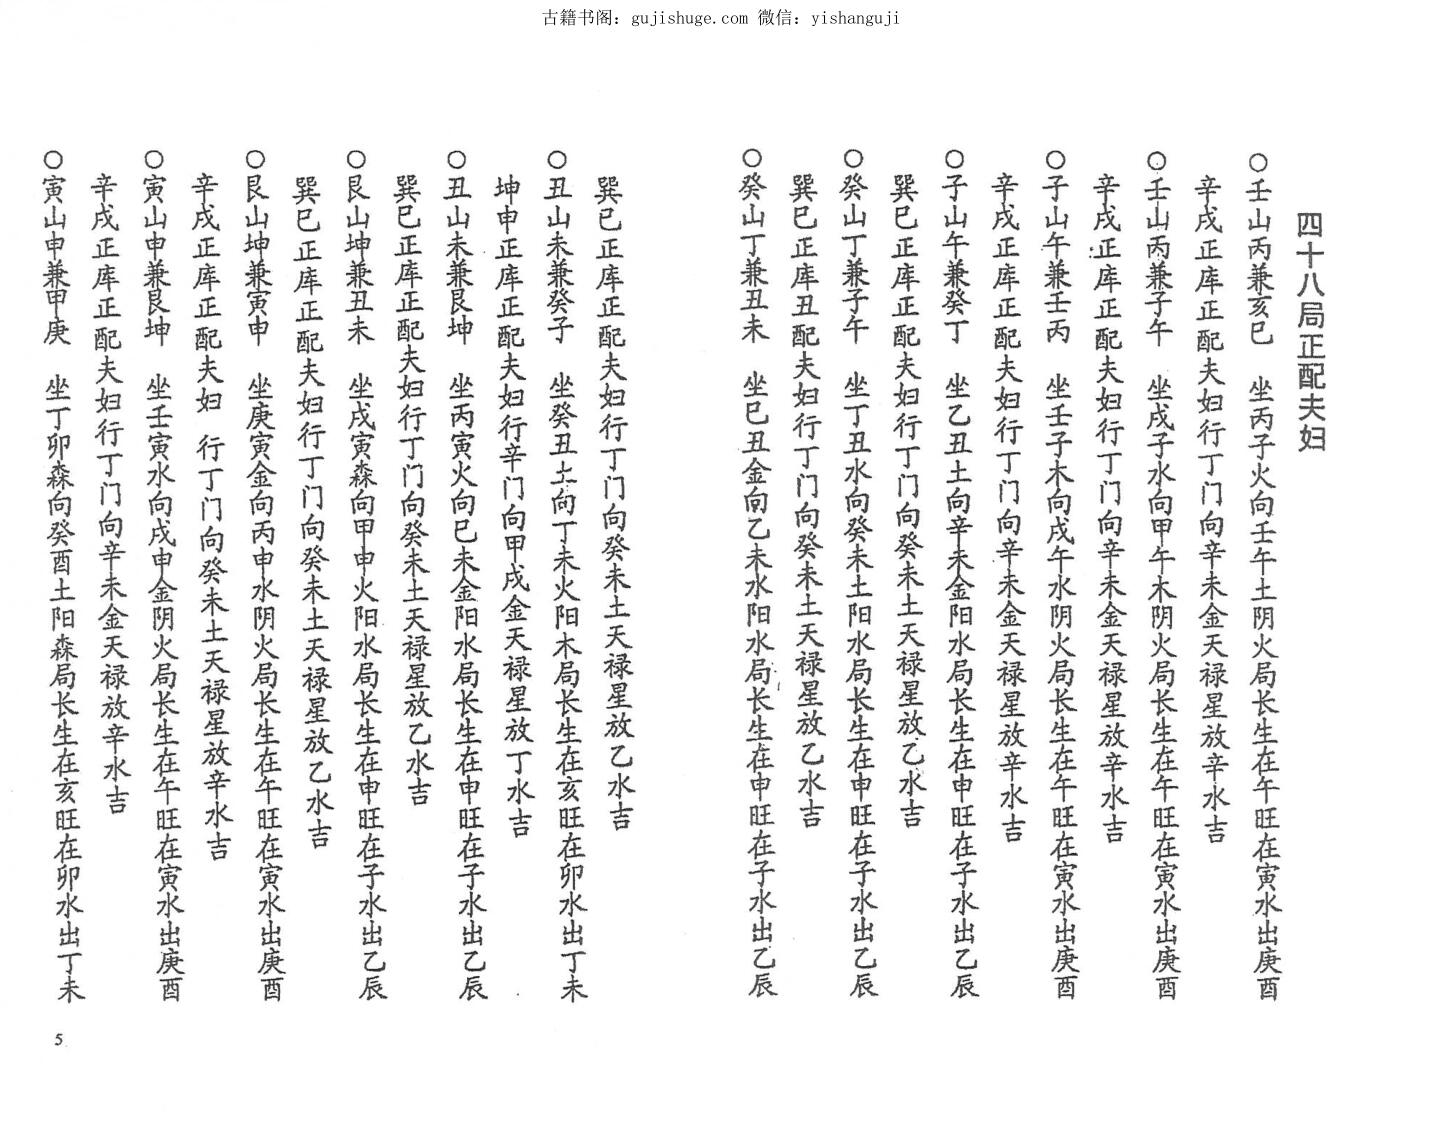 古籍书阁：gujishuge.com 微信：yishanguji
四十八局正配夫妇
○壬山丙兼亥巳　坐丙子火向壬午土阴火局长生在午旺在寅水出庚酉
辛戌正库正配夫妇行丁门向辛未金天禄星放辛水吉
○壬山丙兼子午　坐戊子水向甲午木阴火局长生在午旺在寅水出庚酉
辛戌正库正配夫妇行丁门向辛未金天禄星放辛水吉
○子山午兼壬丙　坐壬子木向戊午水阴火局长生在午旺在寅水出庚酉
辛戌正库正配夫妇行丁门向辛未金天禄星放辛水吉
○子山午兼癸丁　坐乙丑土向辛未金阳水局长生在申旺在子水出乙辰
巽巳正库正配夫妇行丁门向癸未土天禄星放乙水吉
○癸山丁兼子午　坐丁丑水向癸未土阳水局长生在申旺在子水出乙辰
巽巳正库丑配夫妇行丁门向癸未土天禄星放乙水吉
○癸山丁兼丑未　坐巳丑金向乙未水阳水局长生在申旺在子水出乙辰
巽巳正库正配夫妇行丁门向癸未土天禄星放乙水吉
○丑山未兼癸子　坐癸丑土向丁未火阳木局长生在亥旺在卯水出丁未
坤申正库正配夫妇行辛门向甲戌金天禄星放丁水吉
○丑山未兼艮坤　坐丙寅火向巳未金阳水局长生在申旺在子水出乙辰
巽巳正库正配夫妇行丁门向癸未土天禄星放乙水吉
○艮山坤兼丑未　坐戌寅森向甲申火阳水局长生在申旺在子水出乙辰
巽巳正库正配夫妇行丁门向癸未土天禄星放乙水吉
○艮山坤兼寅申　坐庚寅金向丙申水阴火局长生在午旺在寅水出庚酉
辛戌正库正配夫妇　行丁门向癸未土天禄星放辛水吉
○寅山申兼艮坤　坐壬寅水向戌申金阴火局长生在午旺在寅水出庚酉
辛戌正库正配夫妇行丁门向辛未金天禄放辛水吉
○寅山申兼甲庚　坐丁卯森向癸酉土阳森局长生在亥旺在卯水出丁未
5